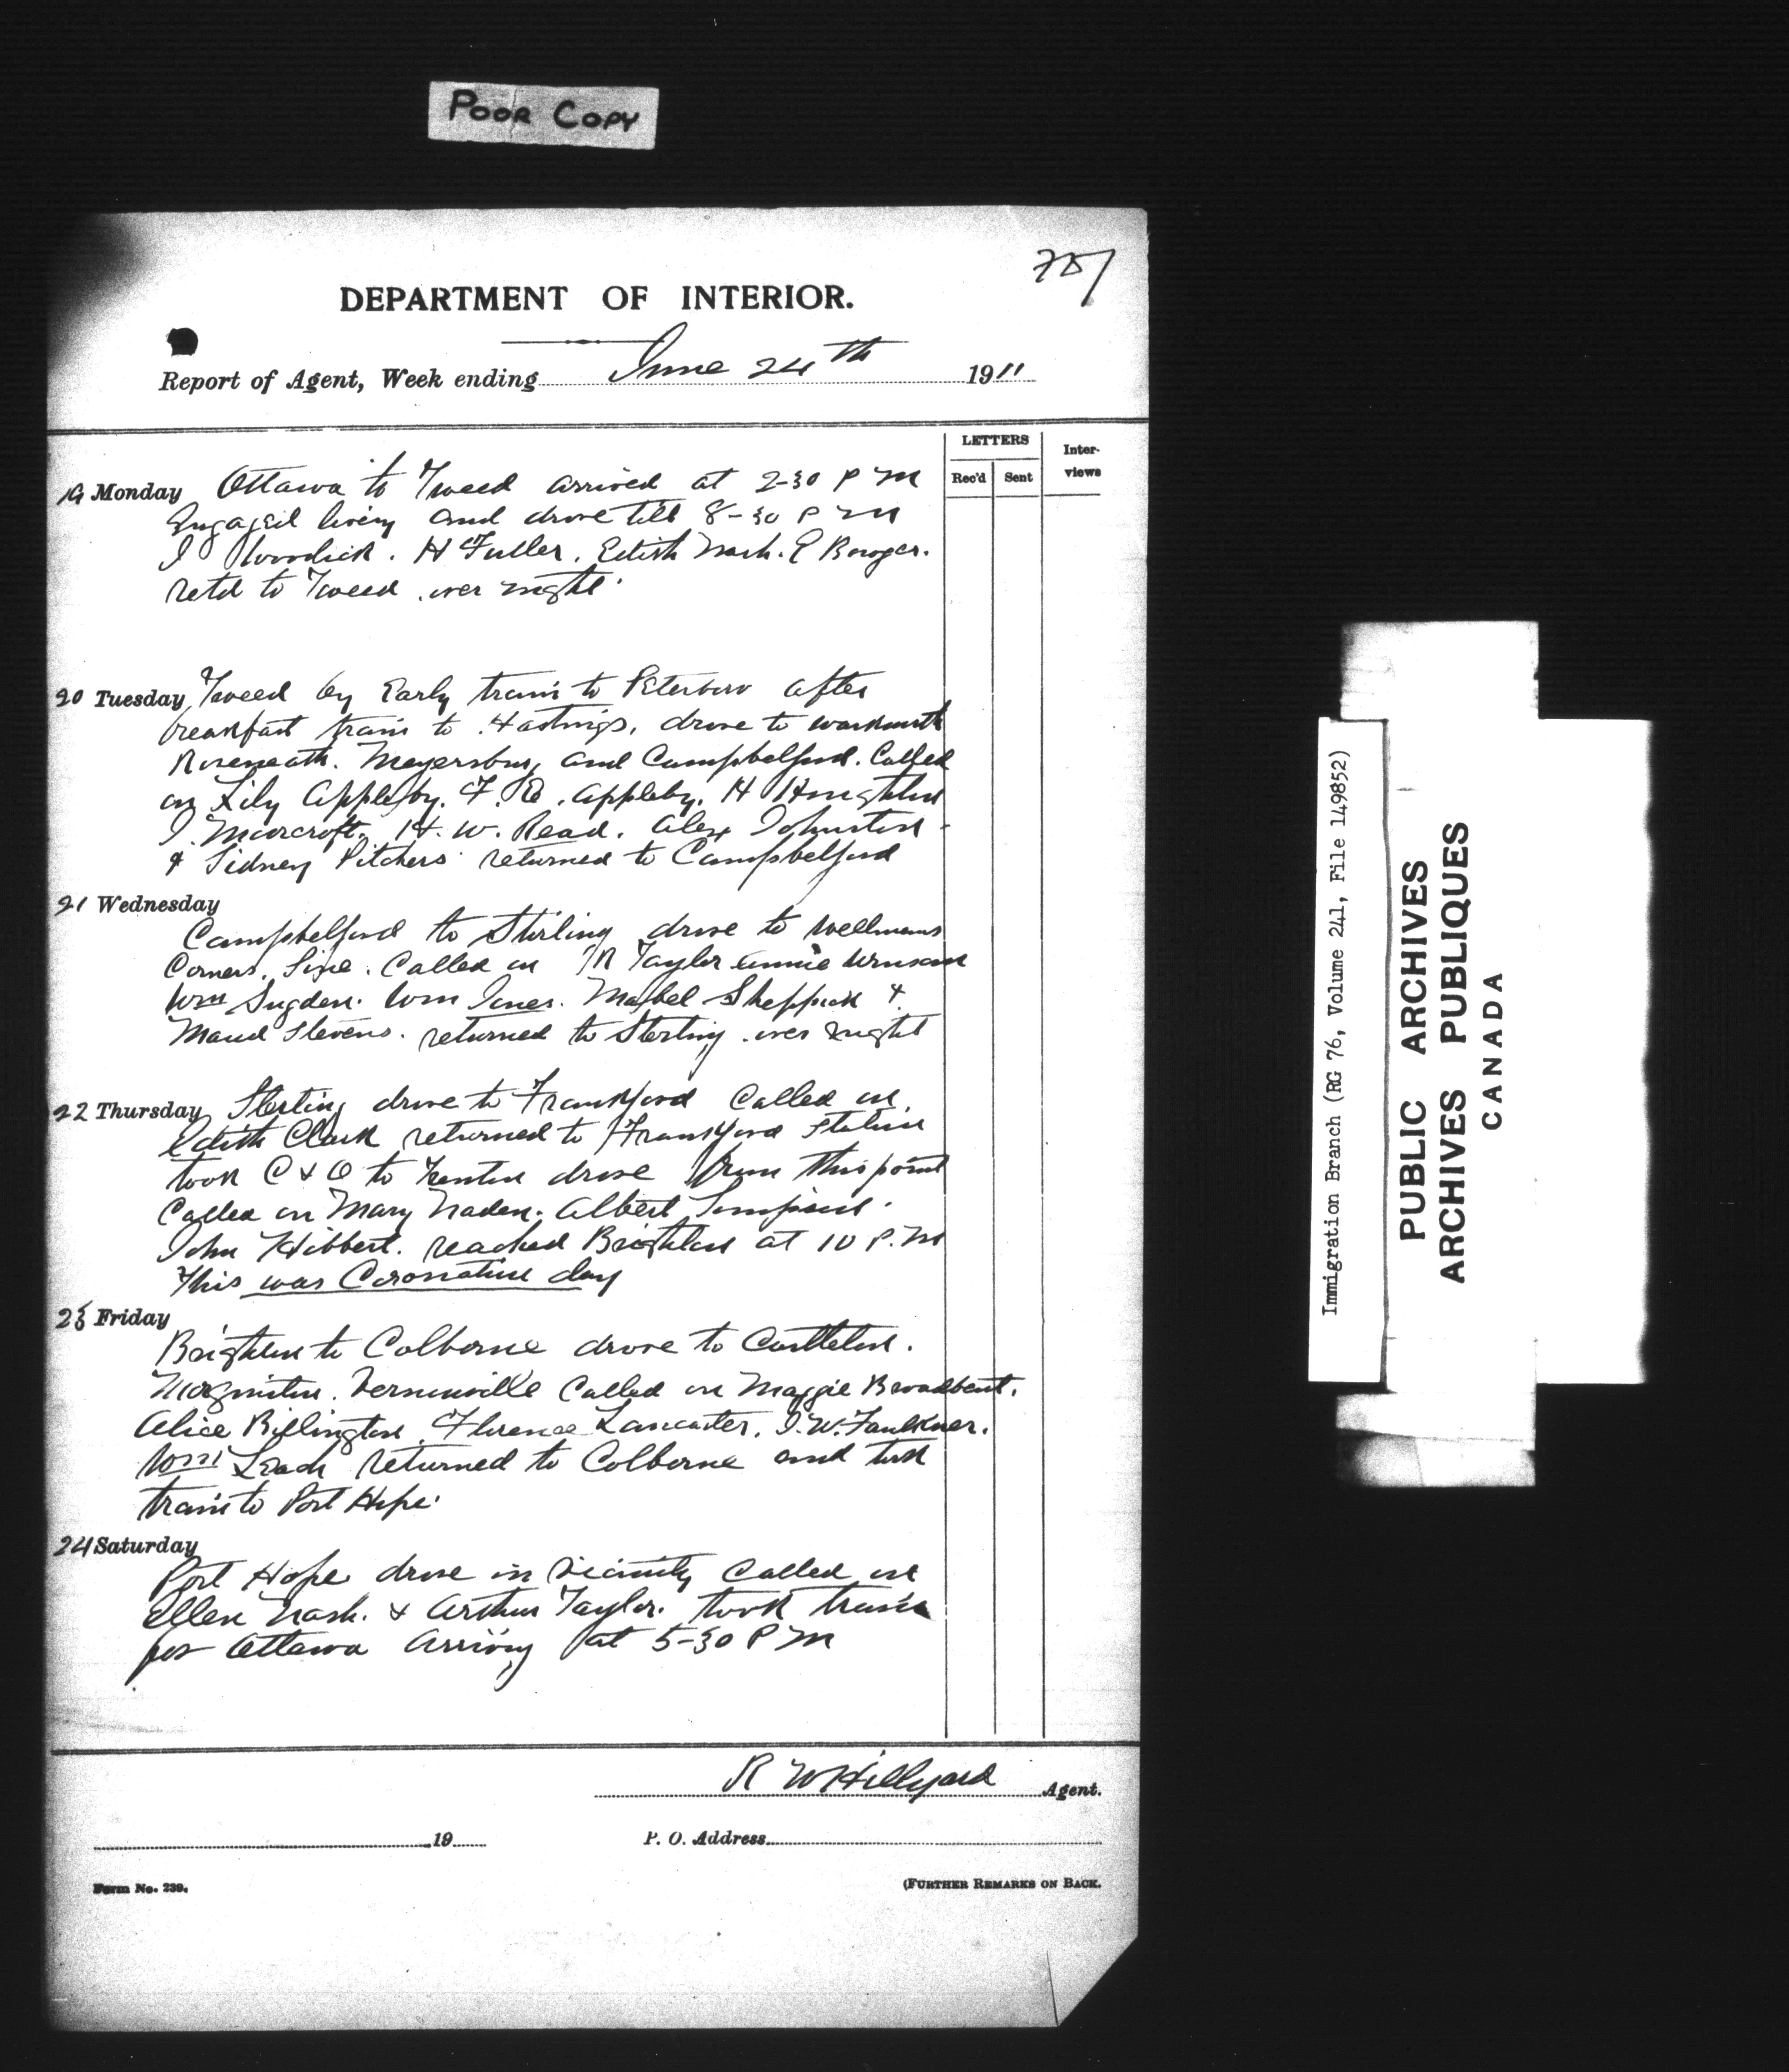 POOR COPY
757
DEPARTMENT OF INTERIOR.
Report of Agent, Week ending June 24th 1911
LETTERS
Rec'd Sent
Inter-
views
19 Monday Ottawa to Tweed arrived at 2-30 P M
Engaged livery and drove till 8-30 P M
J H Fuller. Edith Nash. E
retd to Tweed over night.
20 Tuesday Tweed by Early train to Peterboro after
breakfast train to Hastings, drove to warkworth
Roseneath. Meyersburg and Campbelford. Called
on Lily Appleby. F. E. Appleby. H Houghton
J. Moorcroft. H. W. Read. Alex Johnston
& Sidney Pitchers returned to Campbelford
21 Wednesday
Campbelford to Stirling drove to Wellmans
Corners. Sine. Called on R Taylor Annie
Wm Sugden. Wm Jones. Mabel Sheppick &
Maud Stevens. returned to Sterling over night
22 Thursday Sterling drove to Frankford Called on
Edith Clark returned to Frankford station
took C & O to Trenton drove from this point
Called on Mary Naden. Albert Simpson.
John Hibbert. reached Brighton at 10 P.M
This was Coronation day
23 Friday
Brighton to Colborne drove to Castleton.
Morganston. Vernonville Called on Maggie Broadbent.
Alice Billington. Florence Lancaster. J. W. Faulkner.
Wm Leach returned to Colborne and took
train to Port Hope.
24 Saturday
Port Hope drove in vicinity Called on
Ellen Nash. & Arthur Taylor. took train
for Ottawa arriving at 5-30 P M
R W Hillyard Agent.
19
P. O. Address
Form No. 239.
(FURTHER REMARKS ON BACK.
Immigration Branch (RG 76, Volume 241, File 149852)
PUBLIC ARCHIVES
ARCHIVES PUBLIQUES
CANADA